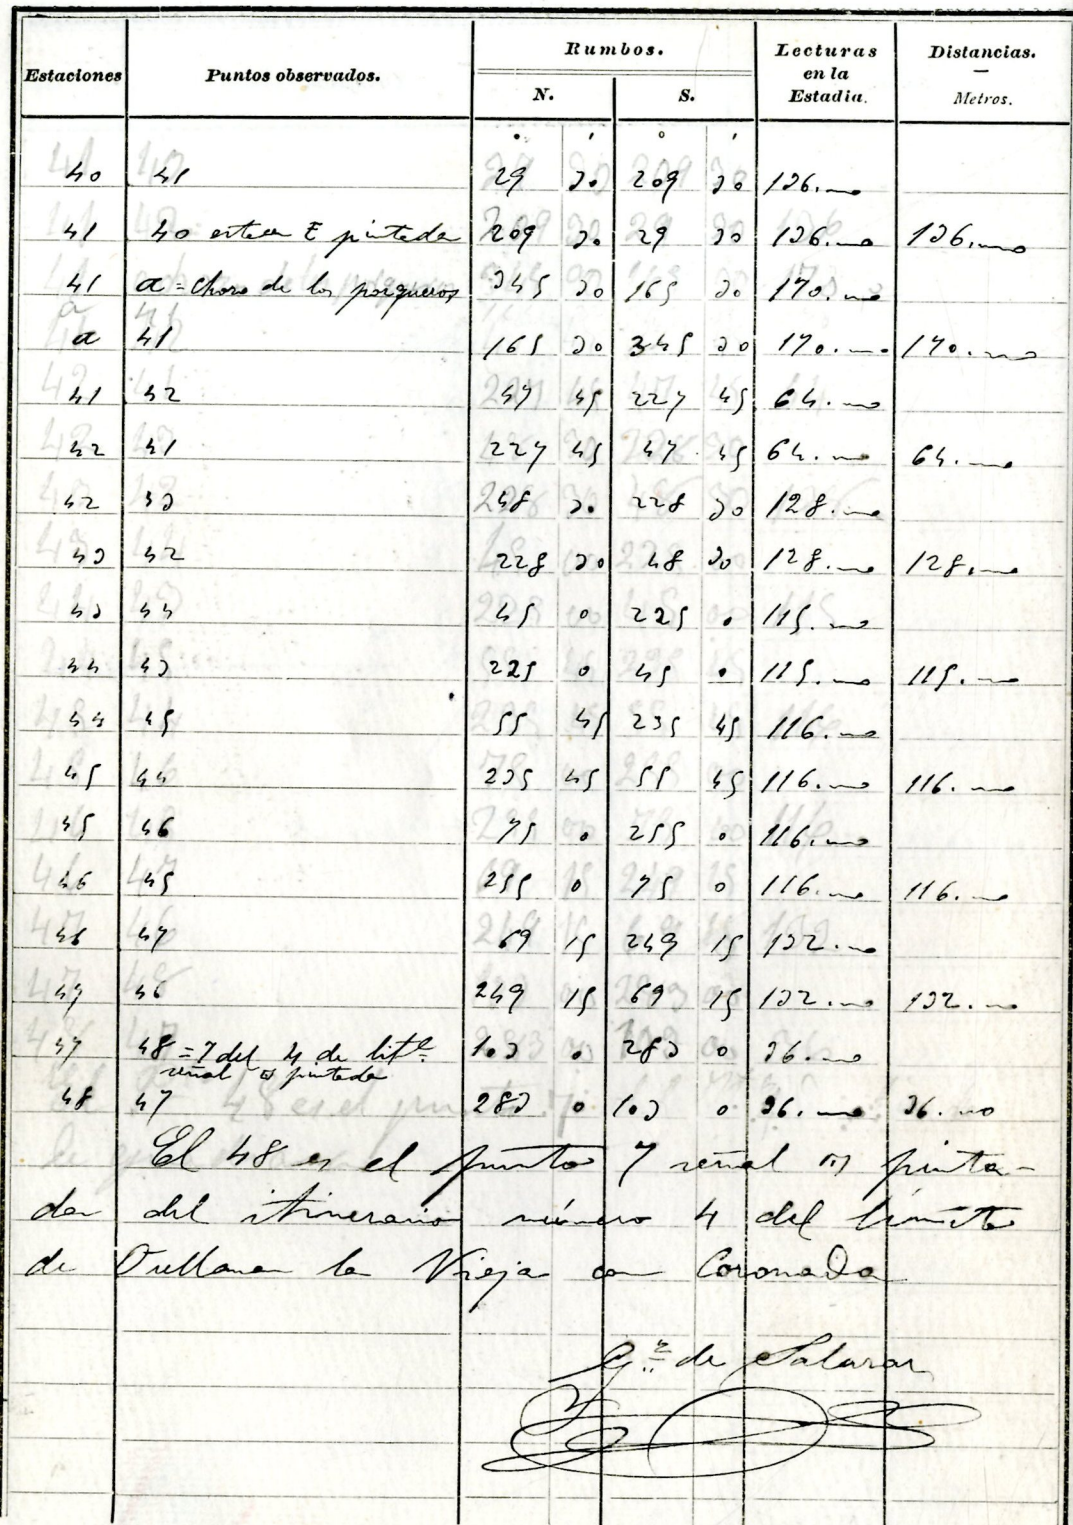 Estaciones Puntos observados. Rumbos. N. S. Lecturas en la Estadia. Distancias. — Metros.
° ' ° '
40 41 29 30 209 30 136.
41 40 estaca E pintada 209 30 29 30 136. 136.
41 a = Chozo de los porqueros 345 30 165 30 170.
a 41 165 30 345 30 170. 170.
41 42 47 45 227 45 64.
42 41 227 45 47 45 64. 64.
42 43 48 30 228 30 128.
43 42 228 30 48 30 128. 128.
43 44 45 0 225 0 115.
44 43 225 0 45 0 115. 115.
44 45 55 45 235 45 116.
45 44 235 45 55 45 116. 116.
45 46 75 0 255 0 116.
46 45 255 0 75 0 116. 116.
46 47 69 15 249 15 132.
47 46 249 15 69 15 132. 132.
47 48 = 7 del 4 de 103 0 283 0 36.
señal pintada
48 47 283 0 103 0 36. 36.
El 48 es el punto 7 señal pinta-
da del itinerario número 4 del límite
de Orellana la Vieja con Coronada
de Salazar